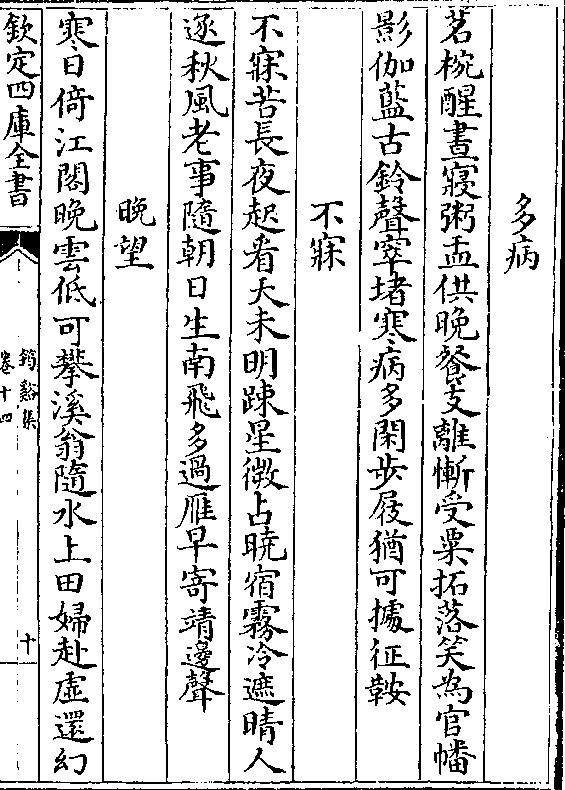 多病
茗椀醒晝寢粥盂供晚餐支離慚受粟拓落笑為官幡
影伽藍古鈴聲窣堵寒病多閑步屐猶可據征鞍
不寐
不寐苦長夜起看天未明踈星微占曉宿霧冷遮晴人
逐秋風老事隨朝日生南飛多過雁早寄靖邊聲
晚望
寒日倚江閣晚雲低可攀溪翁隨水上田婦赴虛還幻
欽定四庫全書
筠谿集
卷十四
十